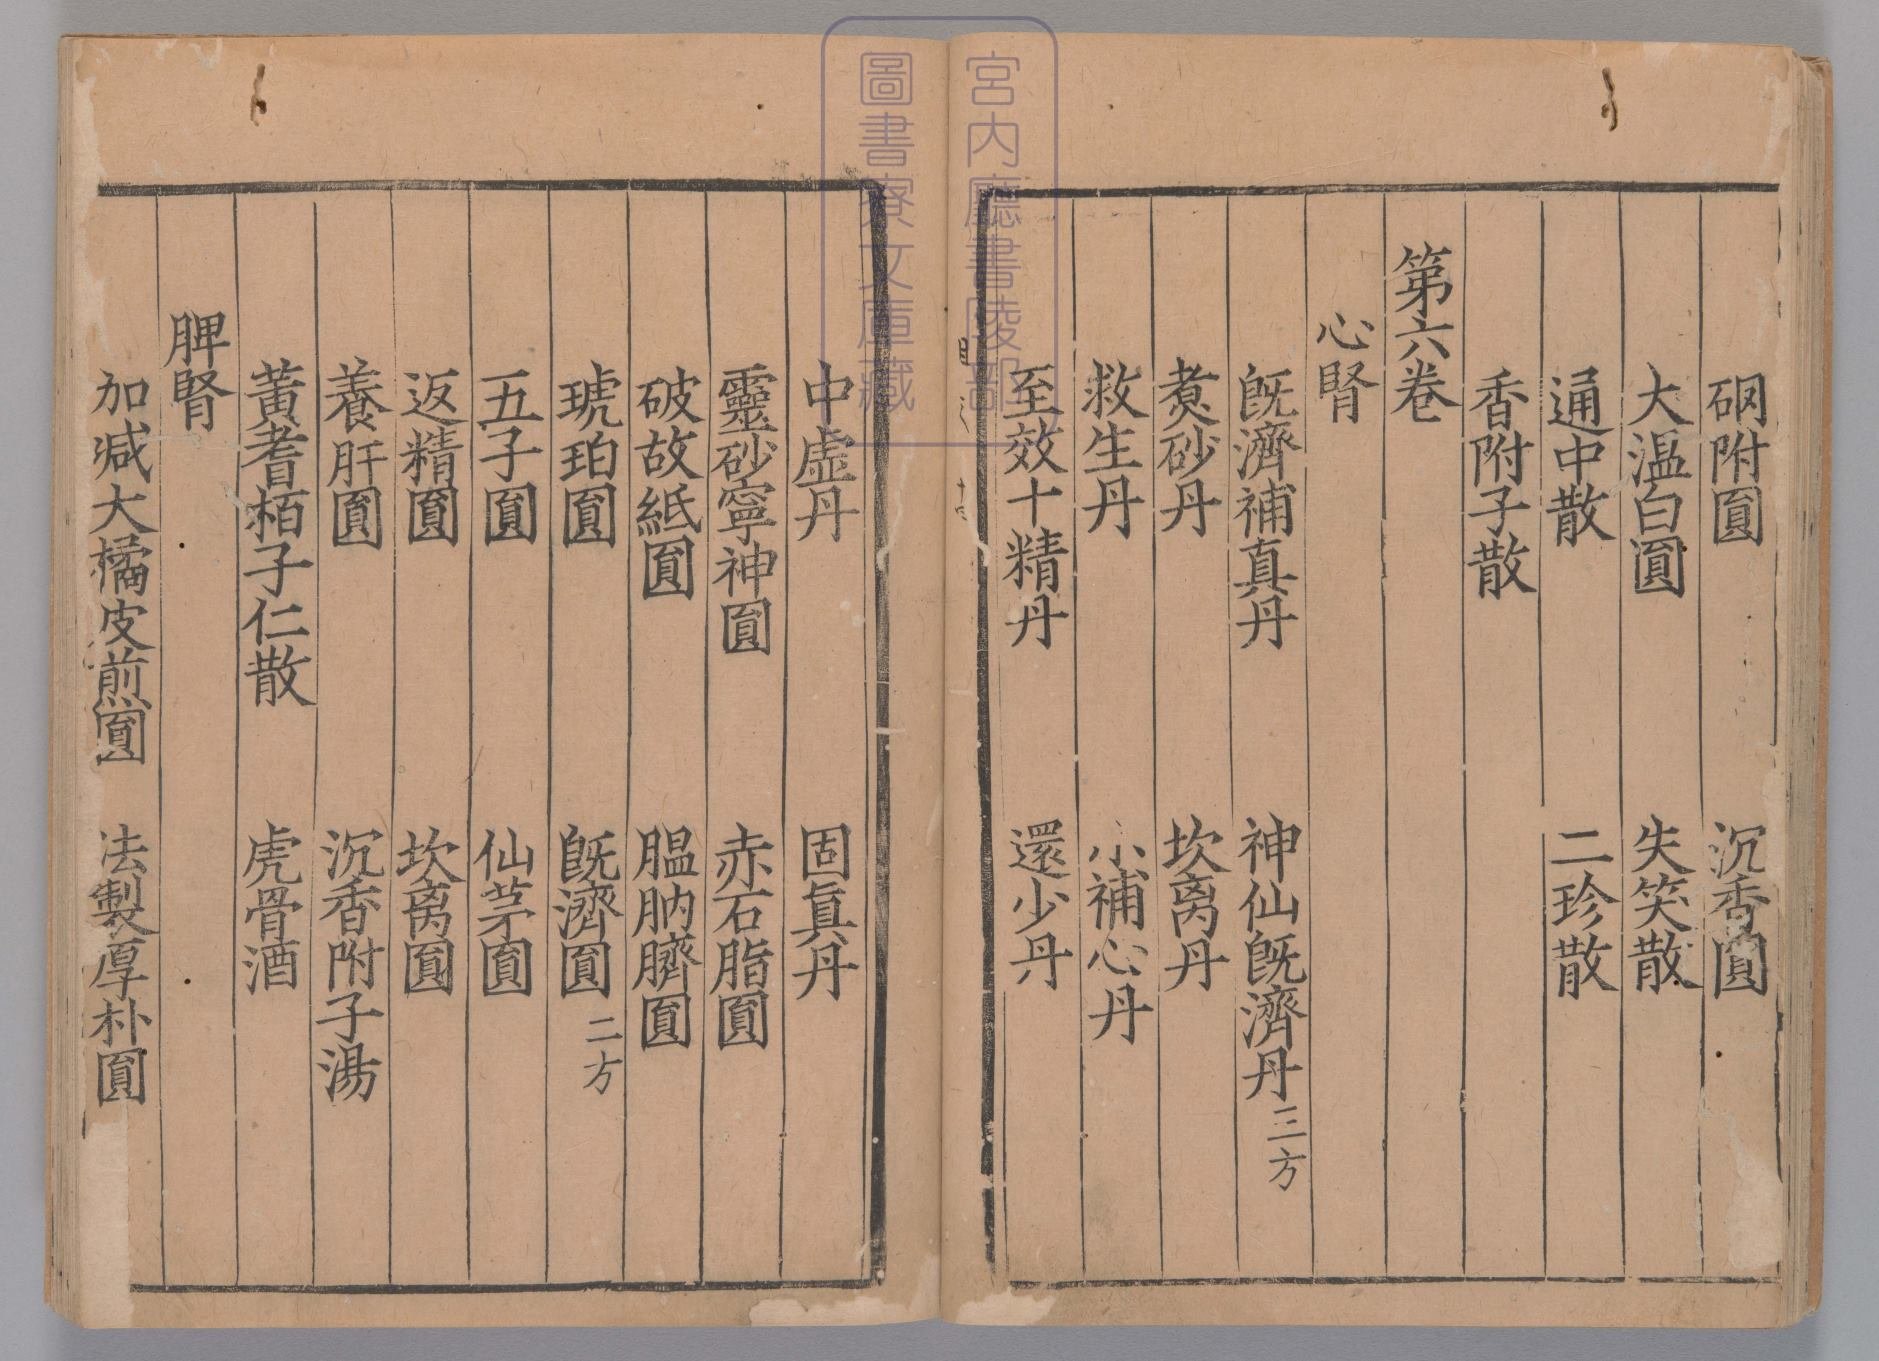 硇附圎 沉香圎
大温白圎 失笑散
通中散 二珍散
香附子散
第六卷
心腎
既濟補真丹 神仙既濟丹三方
煑砂丹 坎离丹
救生丹 小補心丹
至效十精丹 還少丹
中虛丹 固眞丹
靈砂寧神圎 赤石脂圎
破故紙圎 膃肭臍圎
琥珀圎 既濟圎二方
五子圎 仙茅圎
返精圎 坎离圎
養肝圎 沉香附子湯
黃耆栢子仁散 虎骨酒
脾腎
加減大橘皮煎圎 法製厚朴圎
宮内廳書陵部
圖書寮文庫藏